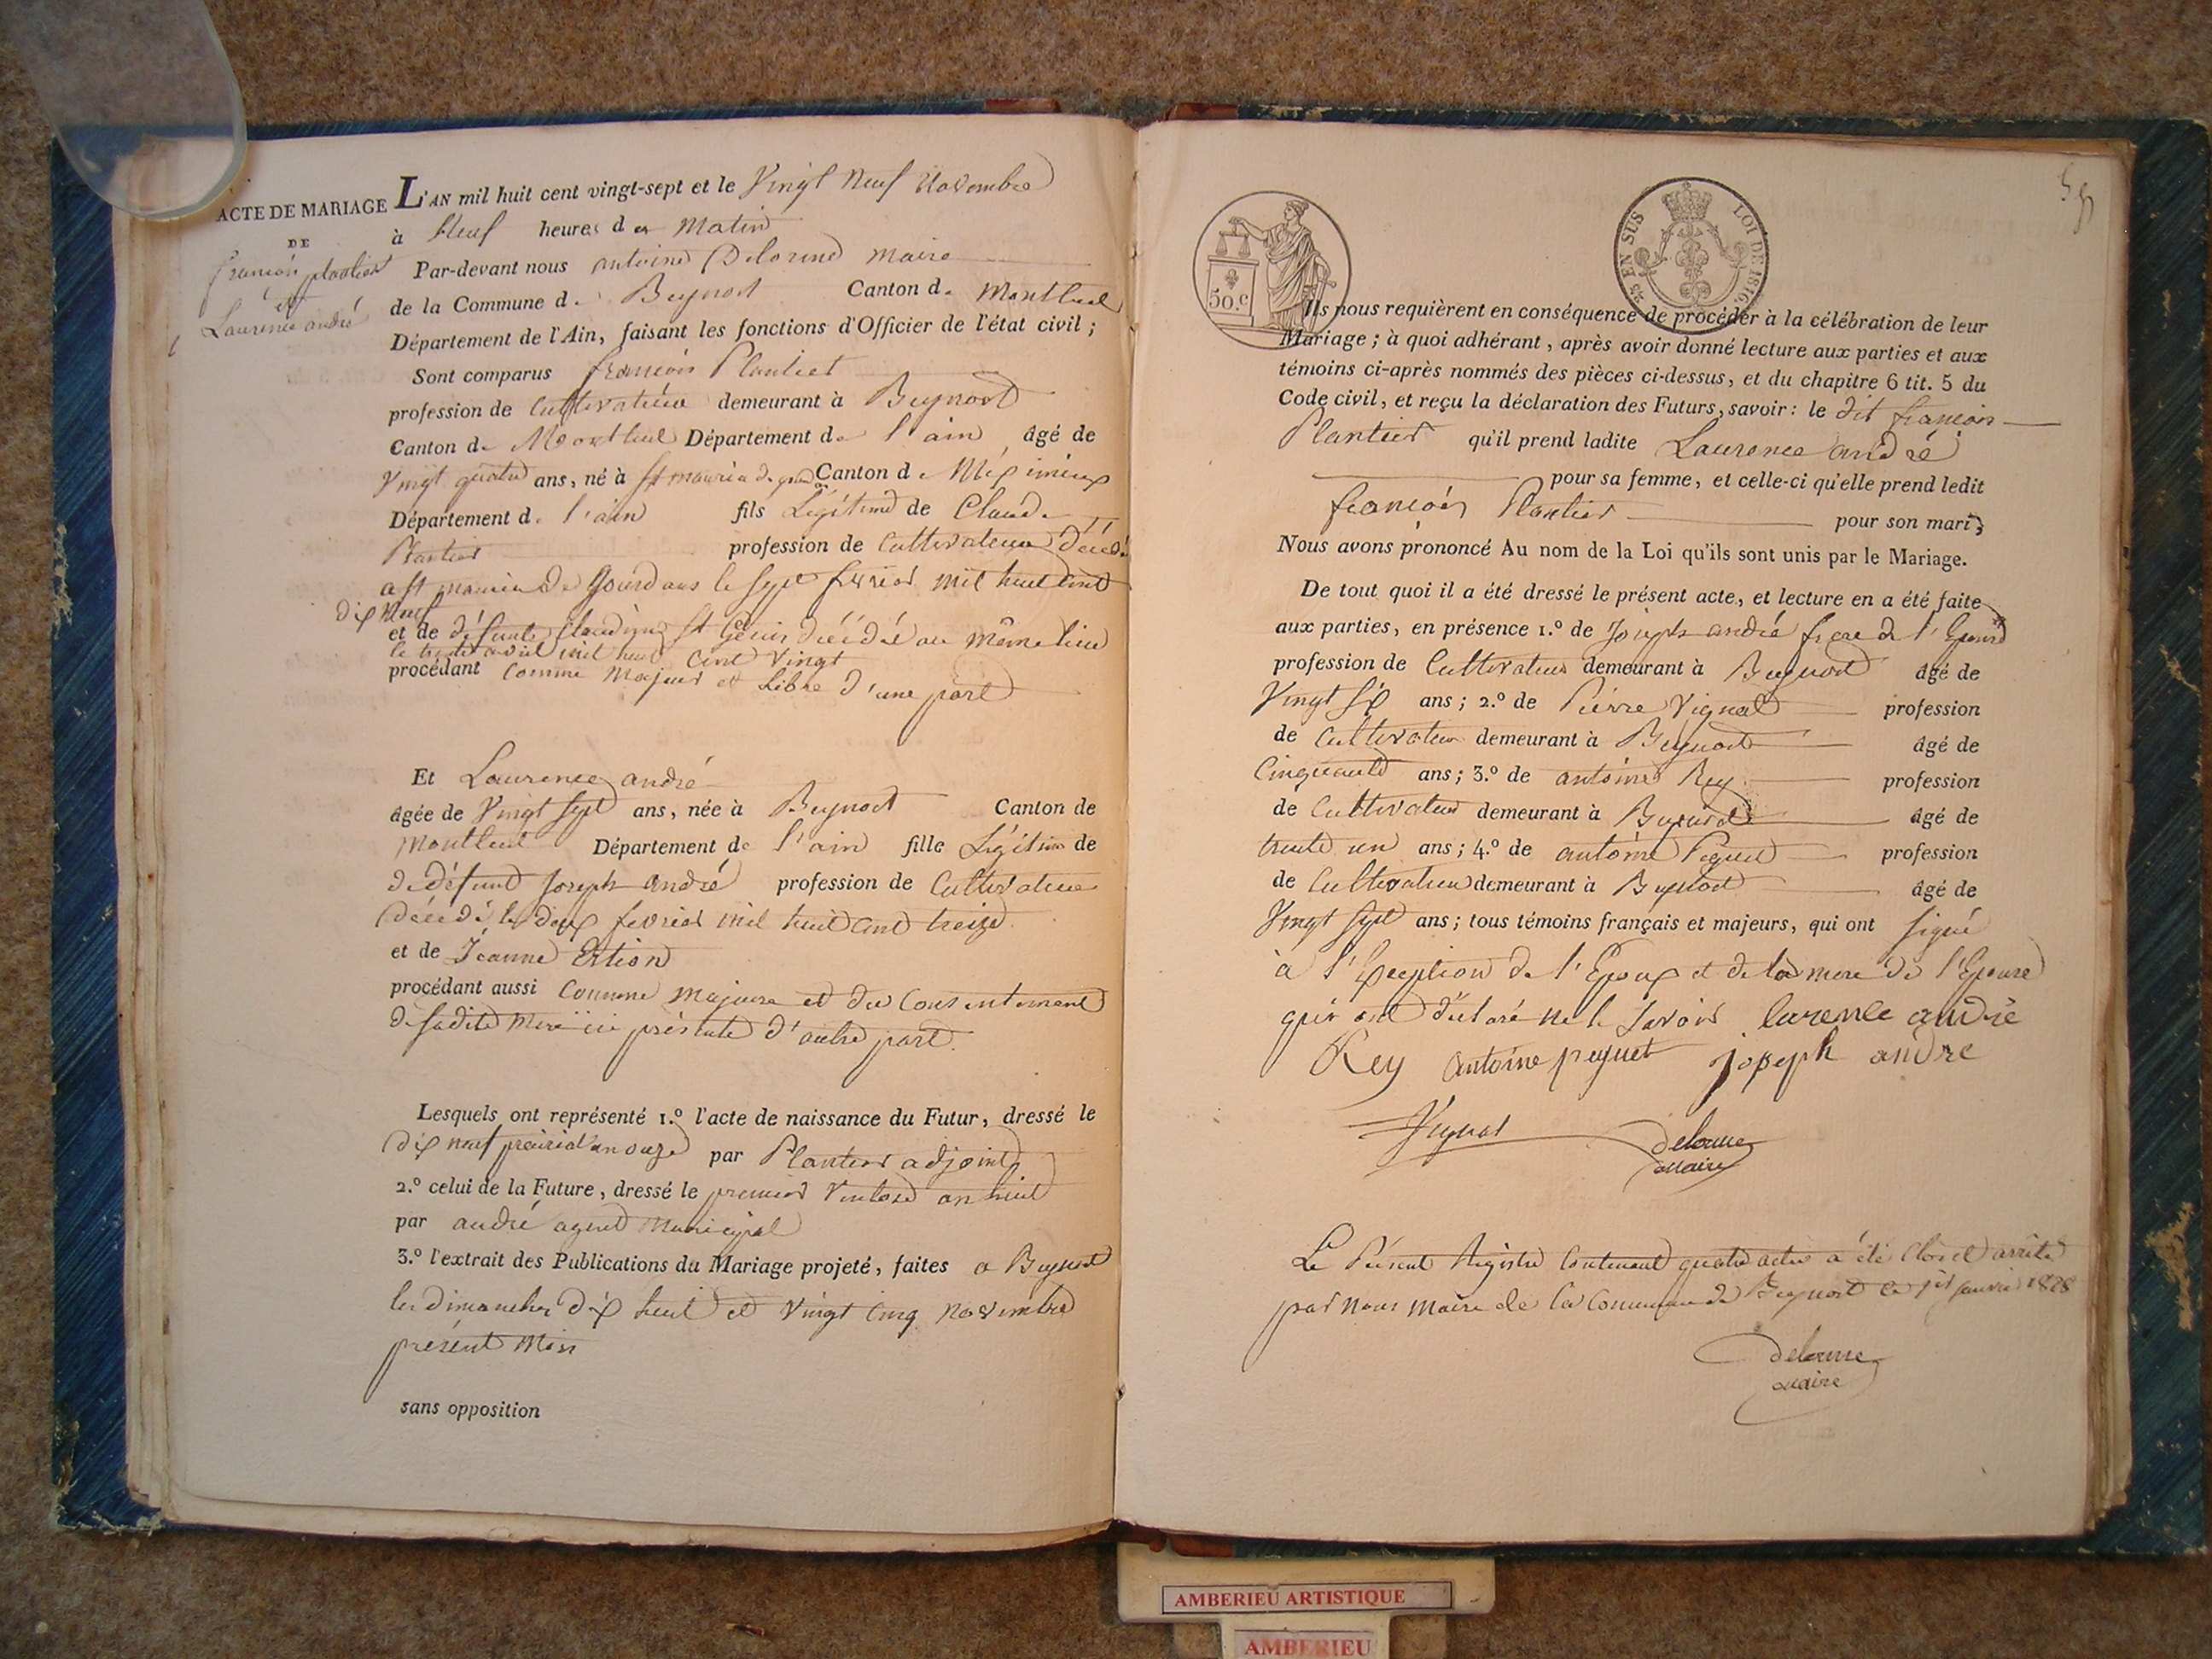 ACTE DE MARIAGE
DE
françois plantier
et
Laurence andré
L'AN mil huit cent vingt-sept et le Vingt Neuf Novembre
à Neuf heures d u Matin
Par-devant nous antoine Delorme maire
de la Commune de Beynost Canton de Montluel
Département de l'Ain, faisant les fonctions d'Officier de l'état civil ;
Sont comparus françois Plantier
profession de Cultivateur demeurant à Beynost
Canton de Montluel Département de l'ain âgé de
Vingt quatre ans, né à St mauris de Canton de Méximieux
Département de l'ain fils Légitime de Claude
Plantier profession de Cultivateur décédé
a St mauris De Gourdans le Sept février mil huit cent
dix Neuf
et de défunte Claudine St décédée au même lieu
le trente avril mil huit Cent Vingt
procédant Comme Majeur et Libre d'une part
Et Laurence andré
âgée de Vingt Sept ans, née à Beynost Canton de
Montluel Département de l'ain fille Légitime de
de défunt Joseph andré profession de Cultivateur
Décédé le deux fevrier mil huit cent treize
et de Jeanne
procédant aussi Comme Majeure et du Consentement
de Sadite Mere ici présente d'autre part.
Lesquels ont représenté 1.º l'acte de naissance du Futur, dressé le
Dix neuf prairial an onze par Plantier adjoint
2.º celui de la Future, dressé le premier Ventose an huit
par andré agent Municipal
3.º l'extrait des Publications du Mariage projeté, faites a Beynost
les dimanches dix huit et Vingt Cinq Novembre
présent Mois
sans opposition
50.c
25 EN SUS LOI DE 1816.
Ils nous requièrent en conséquence de procéder à la célébration de leur
Mariage ; à quoi adhérant, après avoir donné lecture aux parties et aux
témoins ci-après nommés des pièces ci-dessus, et du chapitre 6 tit. 5 du
Code civil, et reçu la déclaration des Futurs, savoir : le dit françois
Plantier qu'il prend ladite Laurence andré
pour sa femme, et celle-ci qu'elle prend ledit
françois Plantier pour son mari ;
Nous avons prononcé Au nom de la Loi qu'ils sont unis par le Mariage.
De tout quoi il a été dressé le présent acte, et lecture en a été faite
aux parties, en présence 1.º de Joseph andré frere de l'Epouse
profession de Cultivateur demeurant à Beynost âgé de
Vingt Six ans ; 2.º de Pierre Vignal profession
de Cultivateur demeurant à Beynost âgé de
Cinquante ans ; 3.º de antoine Rey profession
de Cultivateur demeurant à Beynost âgé de
trente un ans ; 4.º de antoine Peguet profession
de Cultivateur demeurant à Beynost âgé de
Vingt Sept ans ; tous témoins français et majeurs, qui ont signé
à l'Exception de l'Epoux et de la mere de l'Epouse
qui ont déclaré ne le Savoir larence andré
Rey antoine peguet joseph andre
Vignal delorme
maire
Le Présent Régistre Contenant quatre actes a été Clos et arrêté
par Nous Maire de la Commune de Beynost le 1er janvier 1828
delorme
maire
AMBERIEU ARTISTIQUE
AMBERIEU